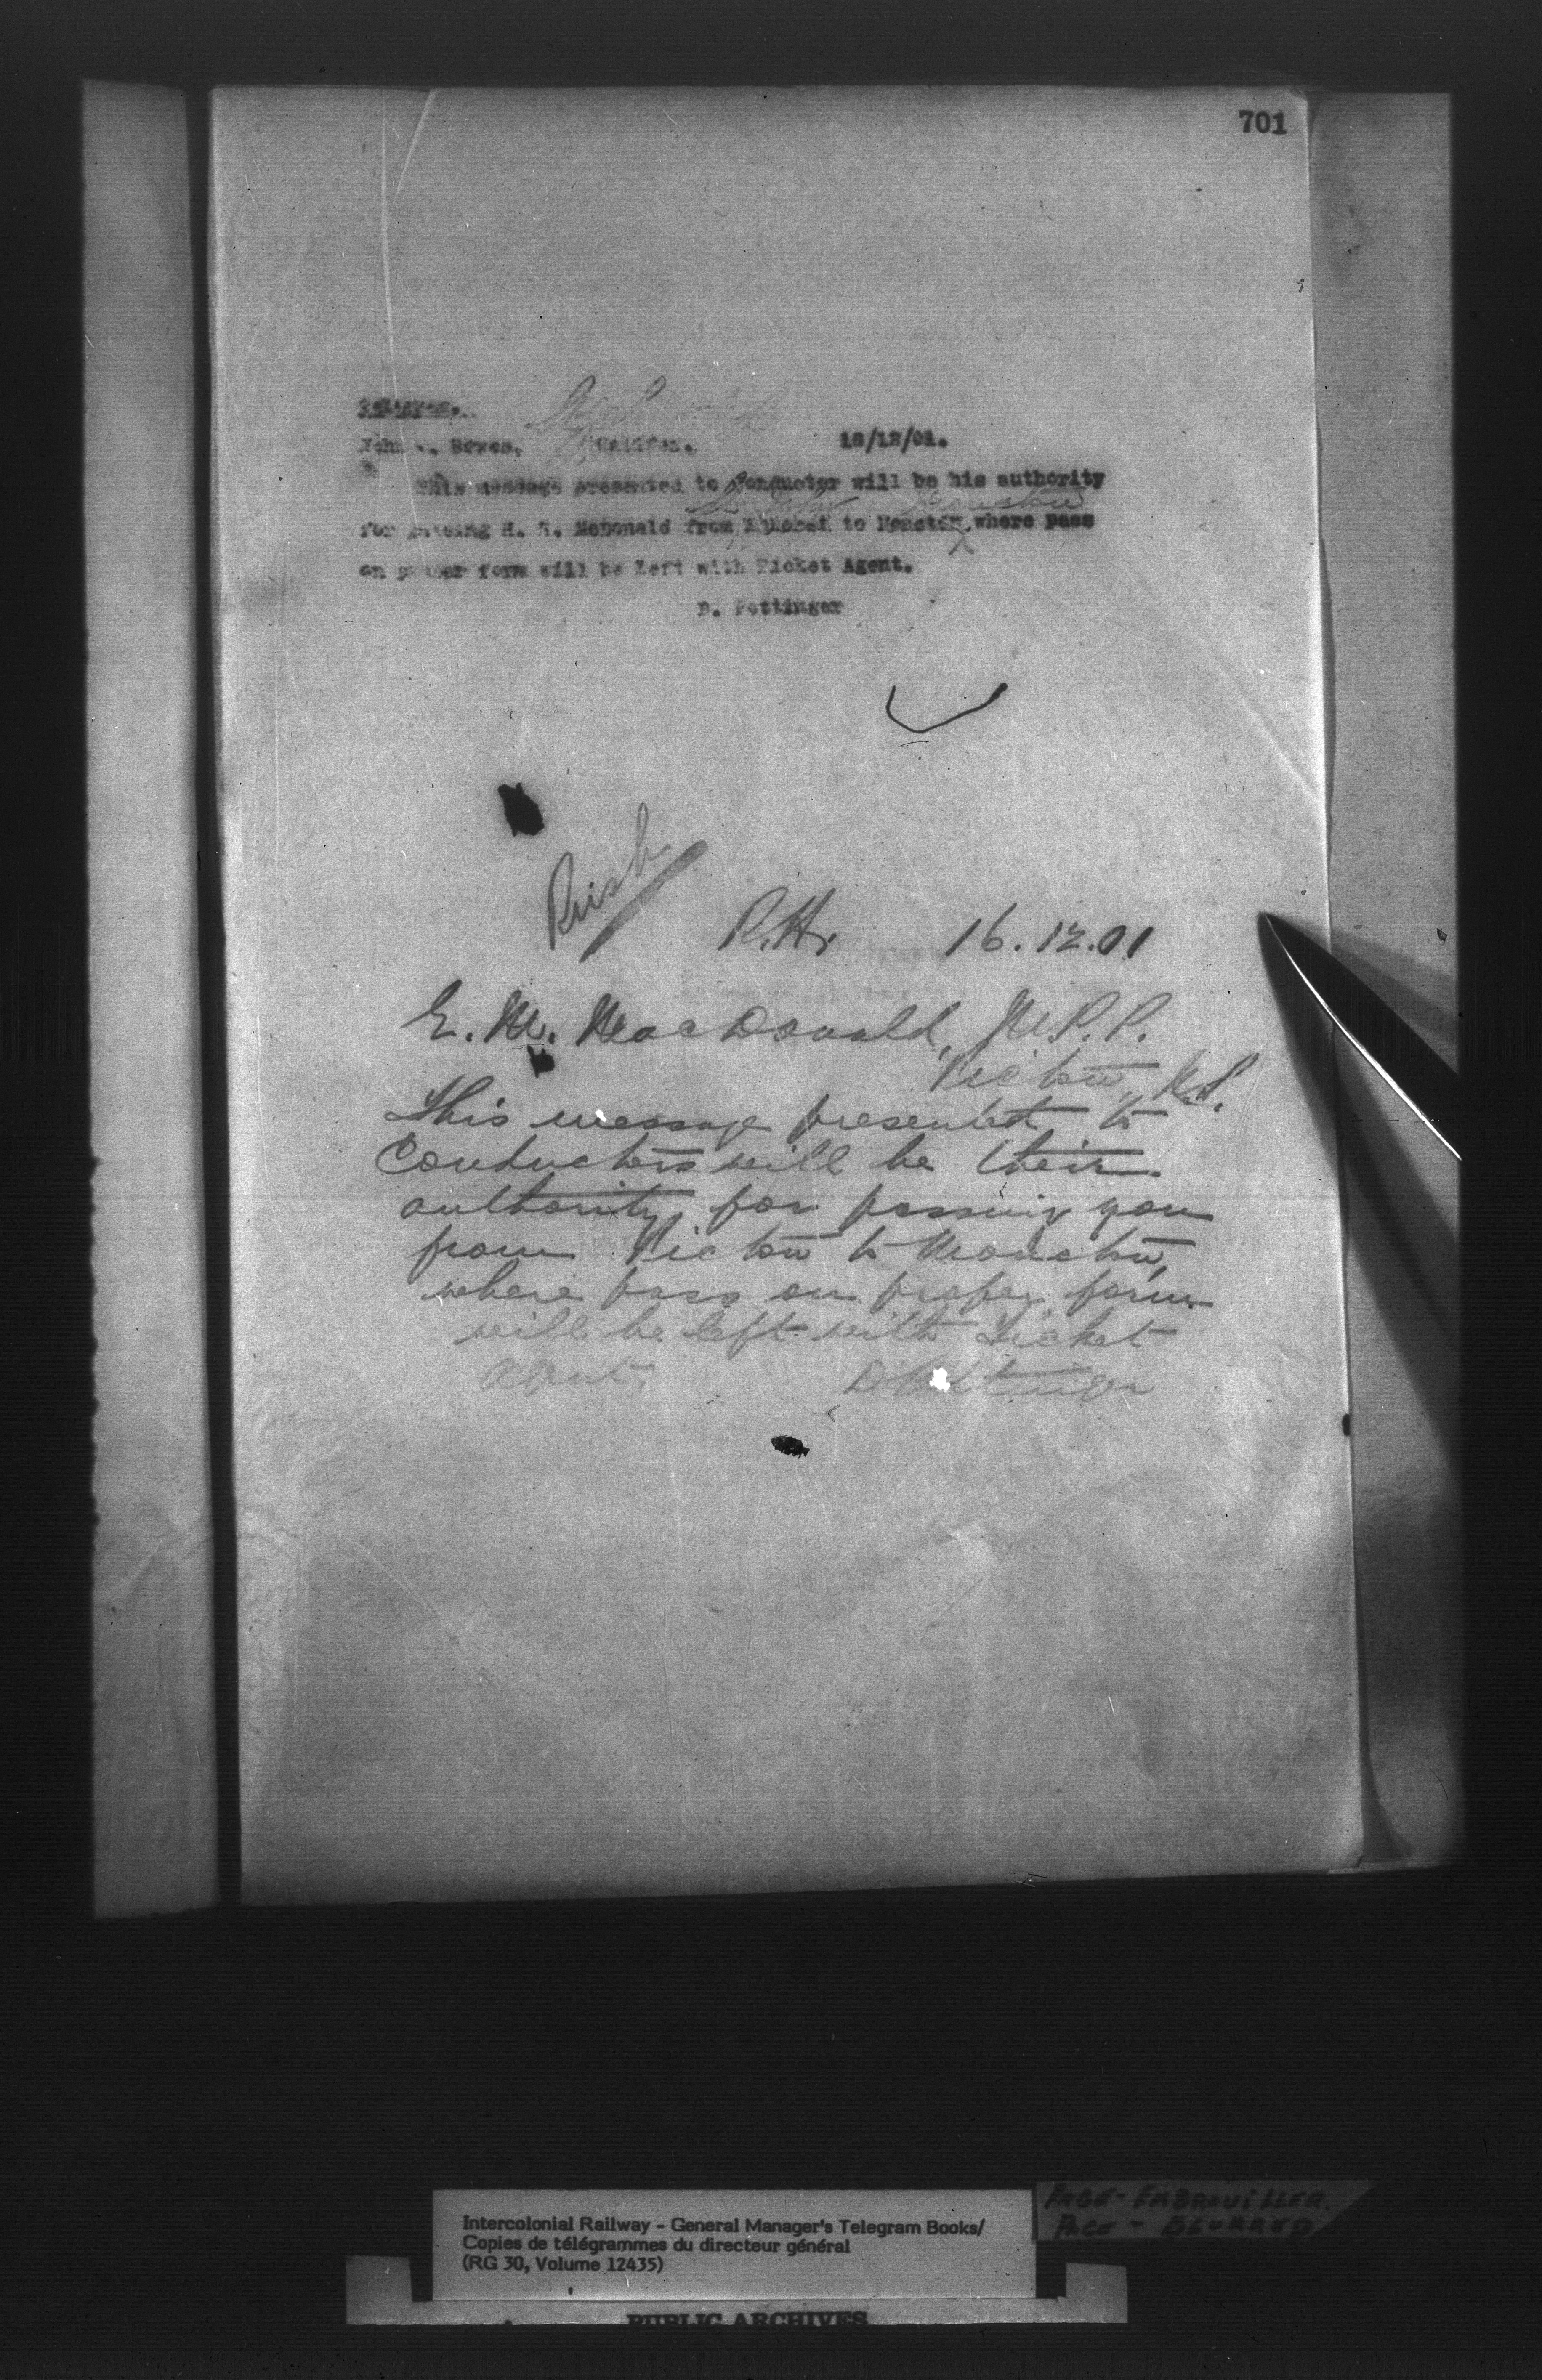 701
18/12/01.
This message presented to Conductor will be his authority
for passing H. McDonald from to Moncton where pass
on proper form will be left with Ticket Agent.
D. Pottinger
Rush
R.H. 16.12.01
E. M. MacDonald, M.P.P.
Pictou, N.S.
This message presented to
Conductors will be their
authority for passing you
from Pictou to Moncton,
where pass on proper form
will be left with Ticket
Agent.
D Pottinger
PAGE - EMBROUILLER.
PAGE - BLURRED
Intercolonial Railway - General Manager's Telegram Books/
Copies de télégrammes du directeur général
(RG 30, Volume 12435)
PUBLIC ARCHIVES